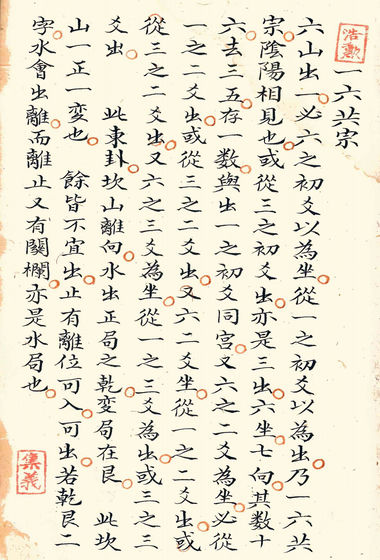 浩勲
一六共宗
六山出一必六之初爻以為坐從一之初爻以為出乃一六共
宗陰陽相見也或從三之初爻出亦是三出六坐七向其數十
六去三五存一数與出一之初爻同宮又六之二爻為坐必從
一之二爻出或從三之二爻出又六二爻坐從一之二爻出或
從三之二爻出又六之三爻為坐從一之三爻為出或三之三
爻出 此東卦坎山離向水出正局之乾変局在艮 此坎
山一正一変也 餘皆不宜出止有離位可入可出若乾艮二
字水會出離而離止又有關欄亦是水局也
集義